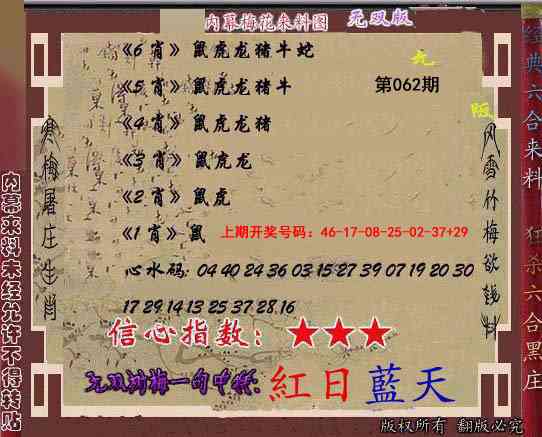 内幕梅花来料图 无双版
《6 肖》 鼠虎龙猪牛蛇
《5 肖》 鼠虎龙猪牛
第062期
《4 肖》 鼠虎龙猪
《3 肖》 鼠虎龙
《2 肖》 鼠虎
《1 肖》 鼠
上期开奖号码：46-17-08-25-02-37+29
心水码: 04 40 24 36 03 15 27 39 07 19 20 30
17 29 14 13 25 37 28.16
信心指数：★★★
一句中特: 紅日藍天
版权所有 翻版必究
寒梅屠庄生肖
风雪竹梅欲钱料
内幕来料未经允许不得转贴
经典六合来料
狂杀六合黑庄